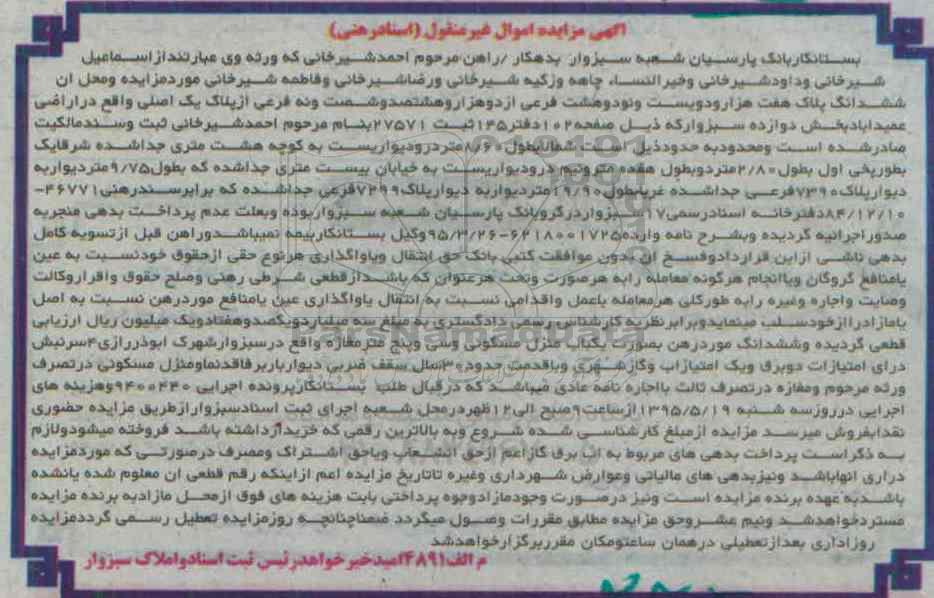 اگهی مزایده اموال غیرمنقول (اسنادرهنی)
بستانکاربانک پارسیان شعبه سبزوار بدهکار /راهن مرحوم احمدشیرخانی که ورثه وی عبارتندازاسماعیل
شیرخانی وداودشیرخانی وخیرالنساء چاهه وزکیه شیرخانی ورضاشیرخانی وفاطمه شیرخانی موردمزایده ومحل ان
ششدانگ پلاک هفت هزارودویست ونودوهشت فرعی ازدوهزاروهشتصدوشصت ونه فرعی ازپلاک یک اصلی واقع دراراضی
عمیدابادبخش دوازده سبزوارکه ذیل صفحه۱۰۲دفتر۱۴۵ثبت ۲۷۵۷۱بنام مرحوم احمدشیرخانی ثبت وسندمالکیت
صادرشده است ومحدودبه حدودذیل است شمالابطول۸/۶۰متردرودیواریست به کوچه هشت متری جداشده شرقایک
بطورپخی اول بطول۲/۸۰متردوبطول هفده مترونیم درودیواریست به خیابان بیست متری جداشده که بطول۹/۷۵متردیواربه
دیوارپلاک۷۳۹۰فرعی جداشده غربابطول۱۹/۹۰متردیواربه دیوارپلاک۷۲۹۹فرعی جداشده که برابرسندرهنی۴۶۷۷۱-
۸۴/۱۲/۱۰دفترخانه اسنادرسمی۱۷سبزواردرگروبانک پارسیان شعبه سبزواربوده وبعلت عدم پرداخت بدهی منجربه
صدوراجرائیه گردیده وبشرح نامه وارده۶۲۱۸۰۰۱۷۲۵-۹۵/۳/۲۶وکیل بستانکاربیمه نمیباشدوراهن قبل ازتسویه کامل
بدهی ناشی ازاین قراردادوفسخ ان بدون موافقت کتبی بانک حق انتقال وباواگذاری هرنوع حقی ازحقوق خودنسبت به عین
یامنافع گروگان ویاانجام هرگونه معامله رابه هرصورت وتحت هرعنوان که باشدازقطعی شرطی رهنی وصلح حقوق واقراروکالت
وصایت واجاره وغیره رابه طورکلی هرمعامله یاعمل واقدامی نسبت به انتقال یاواگذاری عین یامنافع موردرهن نسبت به اصل
یامازادراازخودسلب مینمایدوبرابرنظریه کارشناس رسمی دادگستری به مبلغ سه میلیاردویکصدوهفتادویک میلیون ریال ارزیابی
قطعی گردیده وششدانگ موردرهن بصورت یکباب منزل مسکونی وسی وپنج مترمغازه واقع درسبزوارشهرک ابوذررازی۴سرنبش
درای امتیازات دوبرق ویک امتیازاب وگازشهری وباقدمت حدود۳۰سال سقف ضربی دیوارباربرفاقدنماومنزل مسکونی درتصرف
ورثه مرحوم ومغازه درتصرف ثالث بااجاره نامه عادی میباشد که درقبال طلب بستانکارپرونده اجرایی ۹۴۰۰۴۴۰وهزینه های
اجرایی درروزسه شنبه ۱۳۹۵/۵/۱۹ازساعت۹صبح الی۱۲ظهردرمحل شعبه اجرای ثبت اسنادسبزوارازطریق مزایده حضوری
نقدابفروش میرسد مزایده ازمبلغ کارشناسی شده شروع وبه بالاترین رقمی که خریدارداشته باشد فروخته میشودولازم
به ذکراست پرداخت بدهی های مربوط به اب برق گازاعم ازحق انشعاب ویاحق اشتراک ومصرف درصورتی که موردمزایده
درارای انهاباشد ونیزبدهی های مالیاتی وعوارض شهرداری وغیره تاتاریخ مزایده اعم ازاینکه رقم قطعی ان معلوم شده یانشده
باشدبه عهده برنده مزایده است ونیز درصورت وجودمازادوجوه پرداختی بابت هزینه های فوق ازمحل مازادبه برنده مزایده
مستردخواهدشد ونیم عشروحق مزایده مطابق مقررات وصول میگردد ضمناچنانچه روزمزایده تعطیل رسمی گرددمزایده
روزاداری بعدازتعطیلی درهمان ساعتومکان مقرربرگزارخواهدشد
م الف۴۸۹۱امیدخیرخواهدرئیس ثبت اسنادواملاک سبزوار